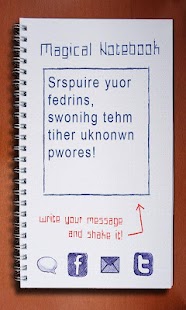 Magical Notebook
Srspuire yuor
fedrins,
swonihg tehm
tiher uknonwn
pwores!
write your message
and shake it!
f
t